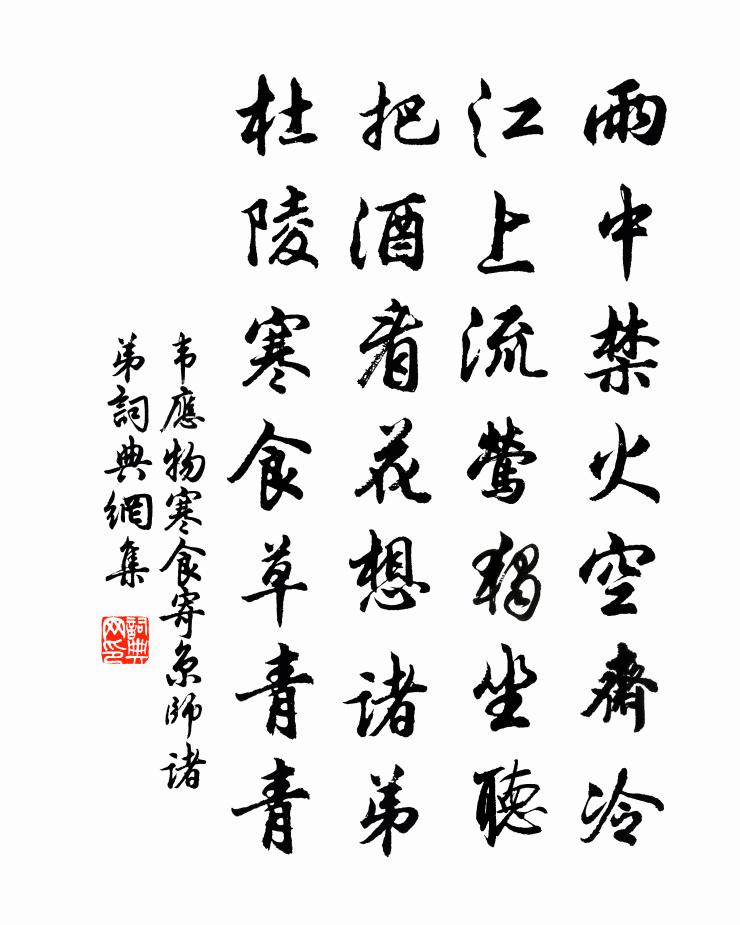 雨中禁火空齋冷
江上流鶯獨坐聽
把酒看花想諸弟
杜陵寒食草青青
韦應物寒食寄京師諸
弟詞典網集
詞典网印